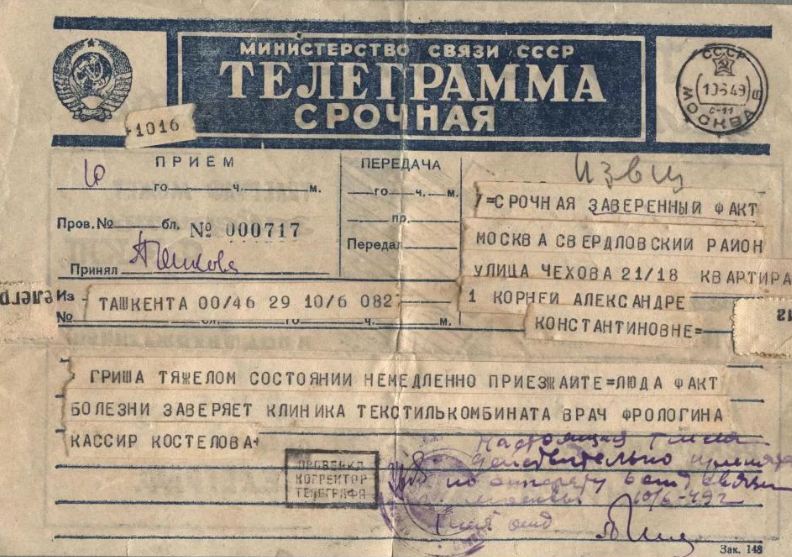 МИНИСТЕРСТВО СВЯЗИ СССР
ТЕЛЕГРАММА
СРОЧНАЯ
СССР
10·6·49
МОСКВА
1016
ПРИЕМ
го ч. м.
Пров. № бл. № 000717
Принял
ПЕРЕДАЧА
го ч. м.
пр.
Передал
Извещ
7=СРОЧНАЯ ЗАВЕРЕННЫЙ ФАКТ
МОСКВА СВЕРДЛОВСКИЙ РАЙОН
УЛИЦА ЧЕХОВА 21/18 КВАРТИРА
1 КОРНЕЙ АЛЕКСАНДРЕ
КОНСТАНТИНОВНЕ=
Из ТАШКЕНТА 00/46 29 10/6 082
№ бл. го ч. м.
ГРИША ТЯЖЕЛОМ СОСТОЯНИИ НЕМЕДЛЕННО ПРИЕЗЖАЙТЕ=ЛЮДА ФАКТ
БОЛЕЗНИ ЗАВЕРЯЕТ КЛИНИКА ТЕКСТИЛЬКОМБИНАТА ВРАЧ ФРОЛОГИНА
КАССИР КОСТЕЛОВА+
ПРОВЕРКА
КОРРЕКТОР
ТЕЛЕГРАФА
Настоящая
действительно принята
по аппарату связи
Москвы 10/6-49 г
Зак. 148